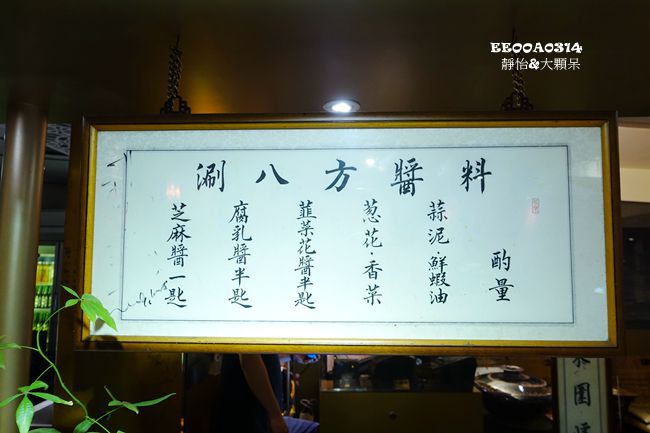 EE00A0314
靜怡&大顆呆
涮八方醬料
芝麻醬一匙
腐乳醬半匙
韮菜花醬半匙
葱花·香菜
蒜泥 鮮蝦油
酌量